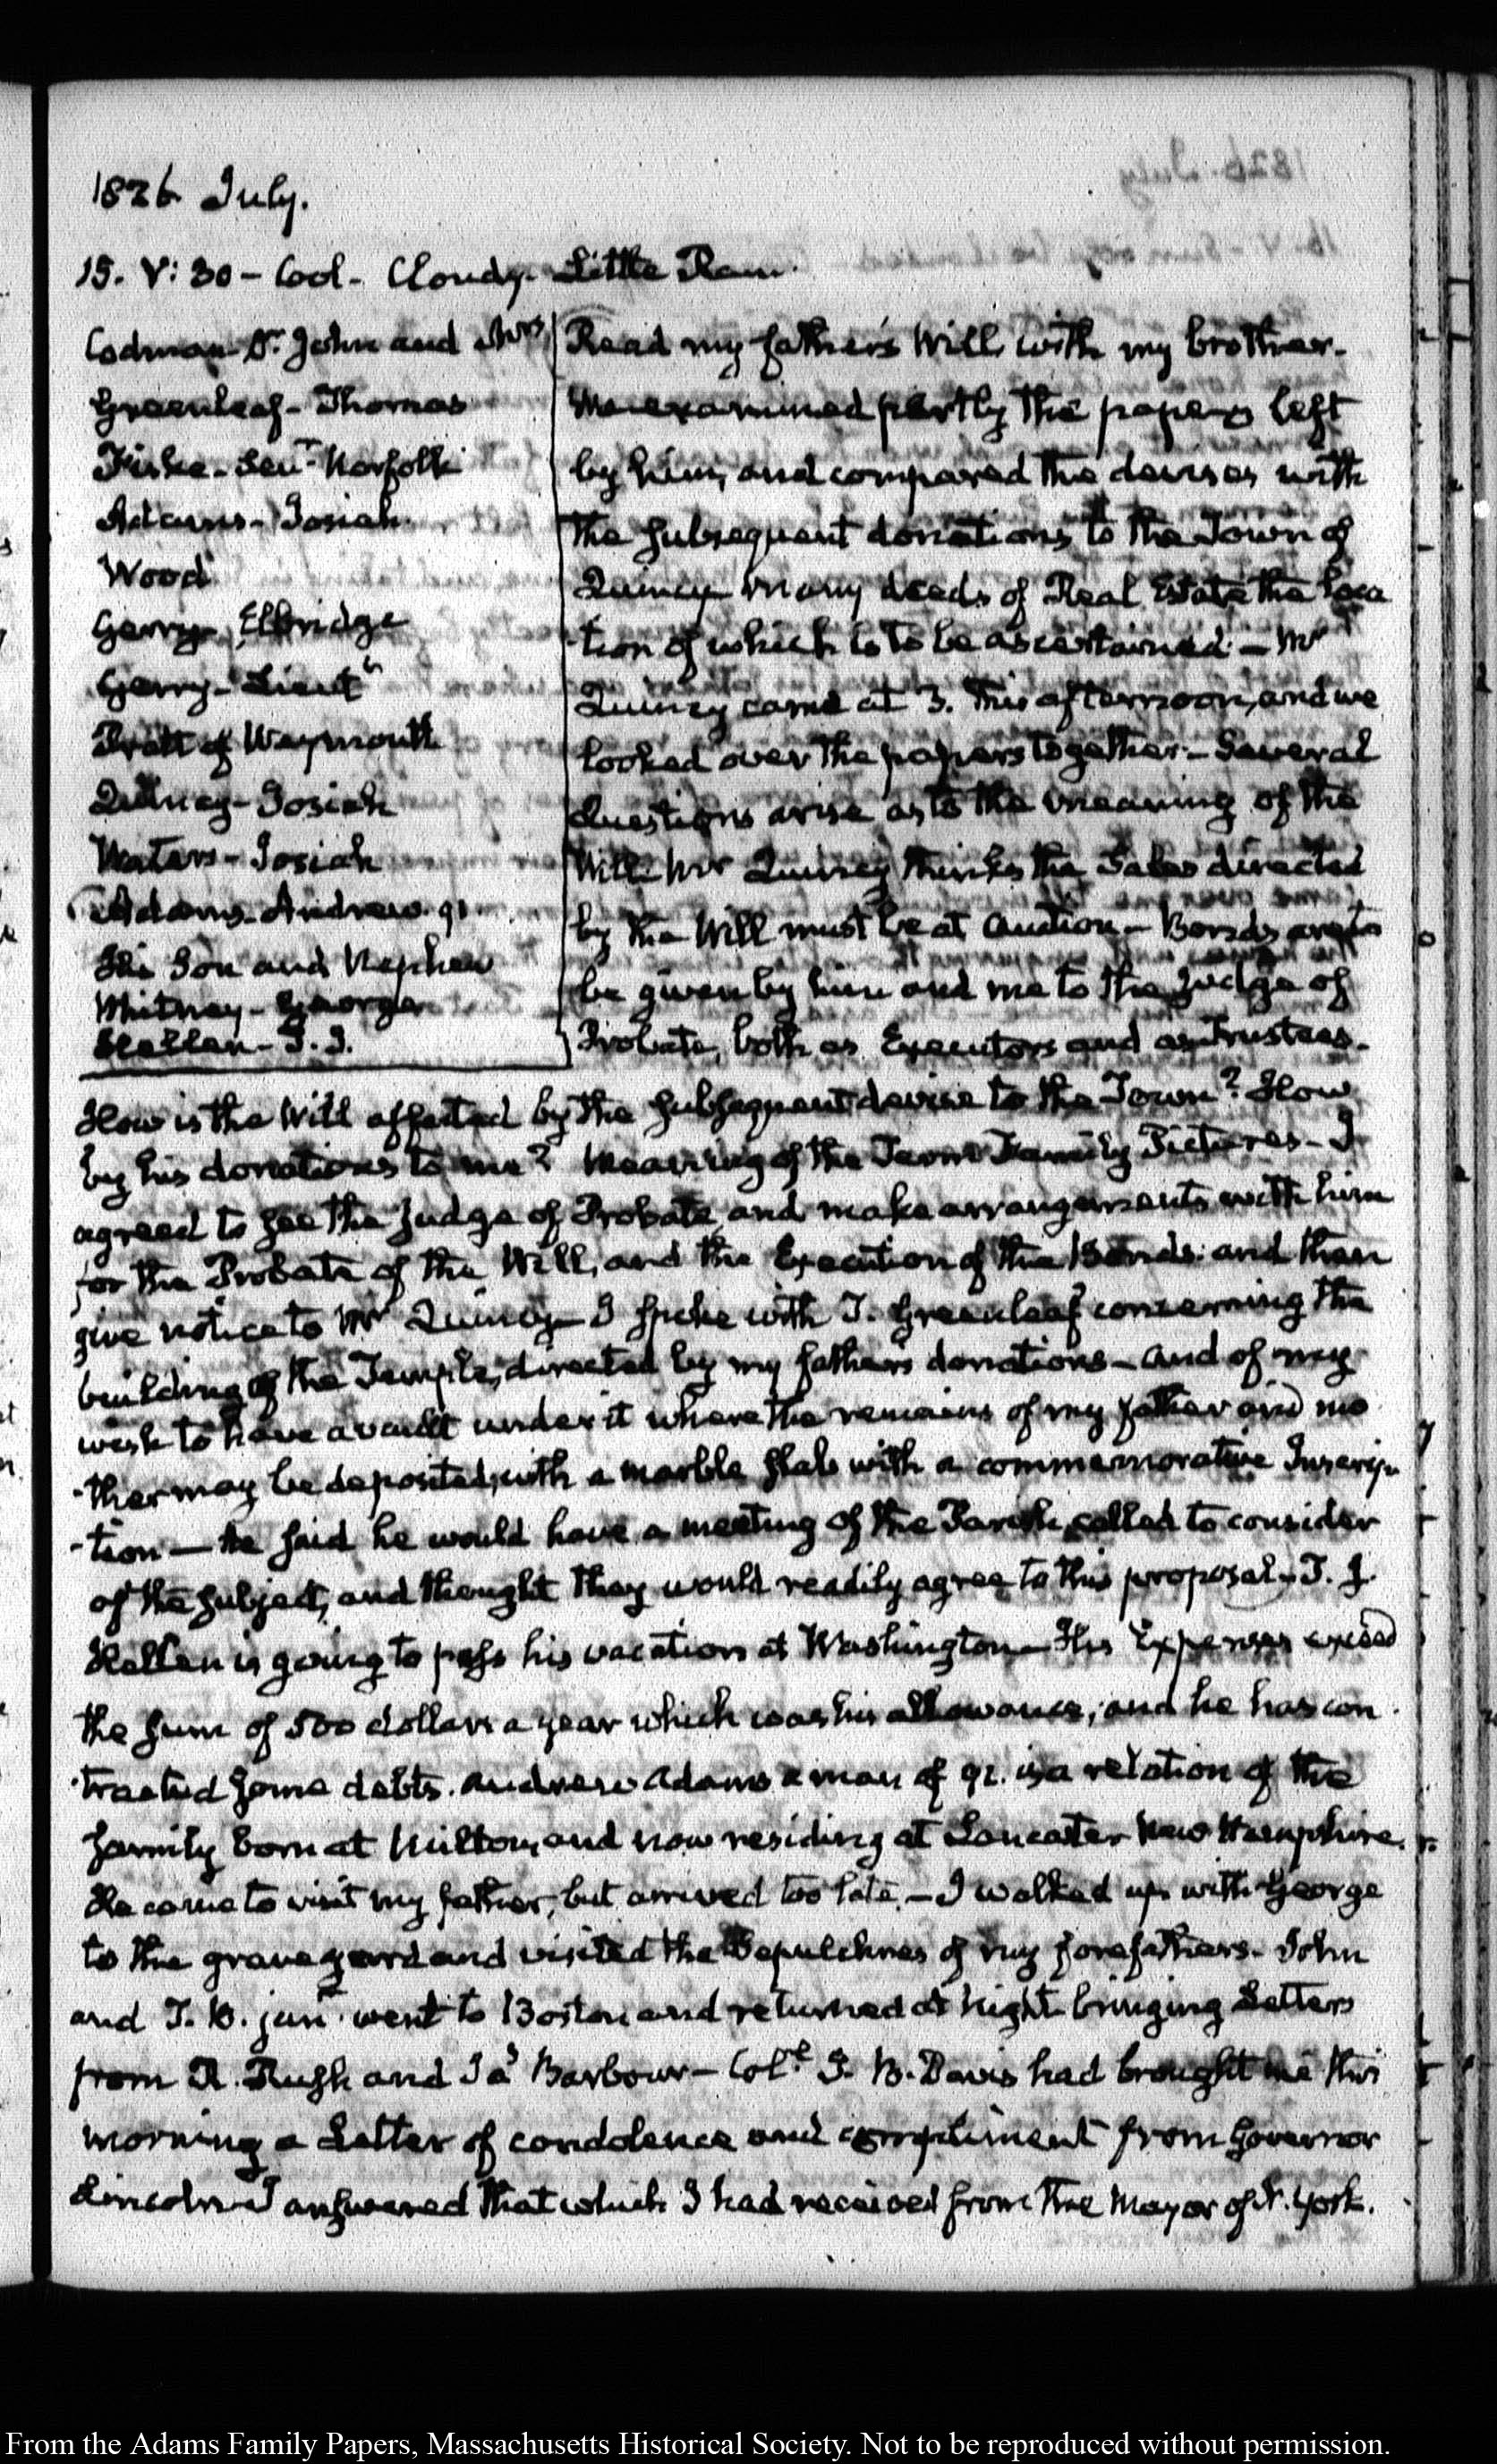 1826 July.
15. V: 30 - Cool. Cloudy. Little Rain.
Codman Dr. John and Mrs
Greenleaf - Thomas
Fiske - Senr. Norfolk
Adams - Josiah
Wood
Gerry, Elbridge
Gerry - Lieutt
Pratt of Weymouth
Quincy - Josiah
Waters - Josiah
Adams - Andrew. 91
His Son and Nephew
Whitney - George
Hellen - T. J.
Read my father's Will, with my brother.
We examined partly the papers left
by him, and compared the devises with
the subsequent donations to the Town of
Quincy. Many deeds of Real Estate the loca
-tion of which is to be ascertained. - Mr
Quincy came at 3. this afternoon, and we
looked over the papers together. - Several
questions arise as to the meaning of the
Will. Mr Quincy thinks the Sales directed
by the Will must be at Auction - Bonds are to
be given by him and me to the Judge of
Probate, both as Executors and as Trustees.
How is the Will affected by the subsequent devise to the Town? How
by his donations to me? Meaning of the Term Family Pictures - I
agreed to see the Judge of Probate, and make arrangements with him
for the Probate of the Will, and the Execution of the Bonds: and then
give notice to Mr Quincy - I spoke with T. Greenleaf concerning the
building of the Temple, directed by my father's donations - and of my
wish to have a vault under it where the remains of my father and mo
-ther may be deposited, with a marble slab with a commemorative Inscrip
-tion - He said he would have a meeting of the Parish called to consider
of the subject, and thought they would readily agree to this proposal - T. J.
Hellen is going to pass his vacation at Washington - His Expenses exceed
the sum of 500 dollars a year which was his allowance; and he has con
-tracted some debts. Andrew Adams a man of 91. is a relation of the
family born at Milton, and now residing at Lancaster New Hampshire.
He came to visit my father, but arrived too late. - I walked up with George
to the graveyard and visited the Sepulchres of my forefathers. John
and T. B. junr. went to Boston and returned at Night bringing Letters
from R. Rush and Jas Barbour - Coll. I. B. Davis had brought me this
morning a Letter of condolence and compliment from Governor
Lincoln - I answered that which I had received from the Mayor of N. York.
From the Adams Family Papers, Massachusetts Historical Society. Not to be reproduced without permission.